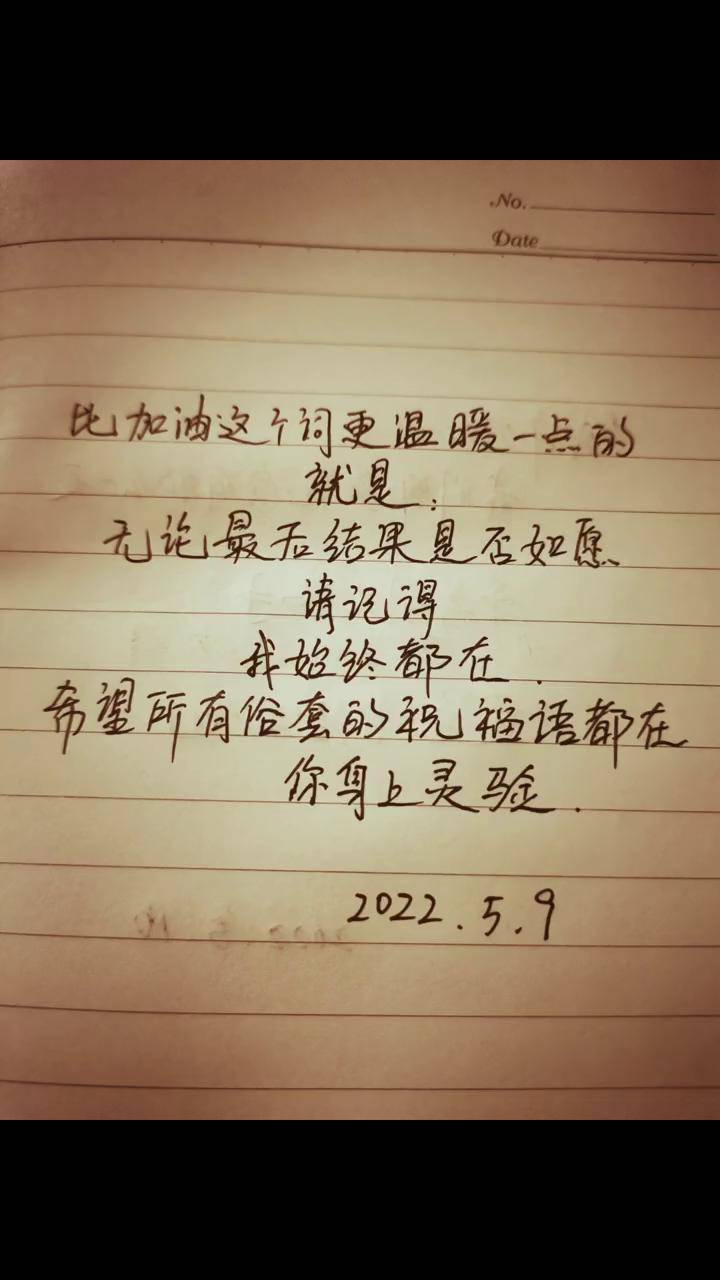 No.
Date
比加油这个词更温暖一点的
就是:
无论最后结果是否如愿
请记得
我始终都在.
希望所有俗套的祝福语都在
你身上灵验.
2022.5.9